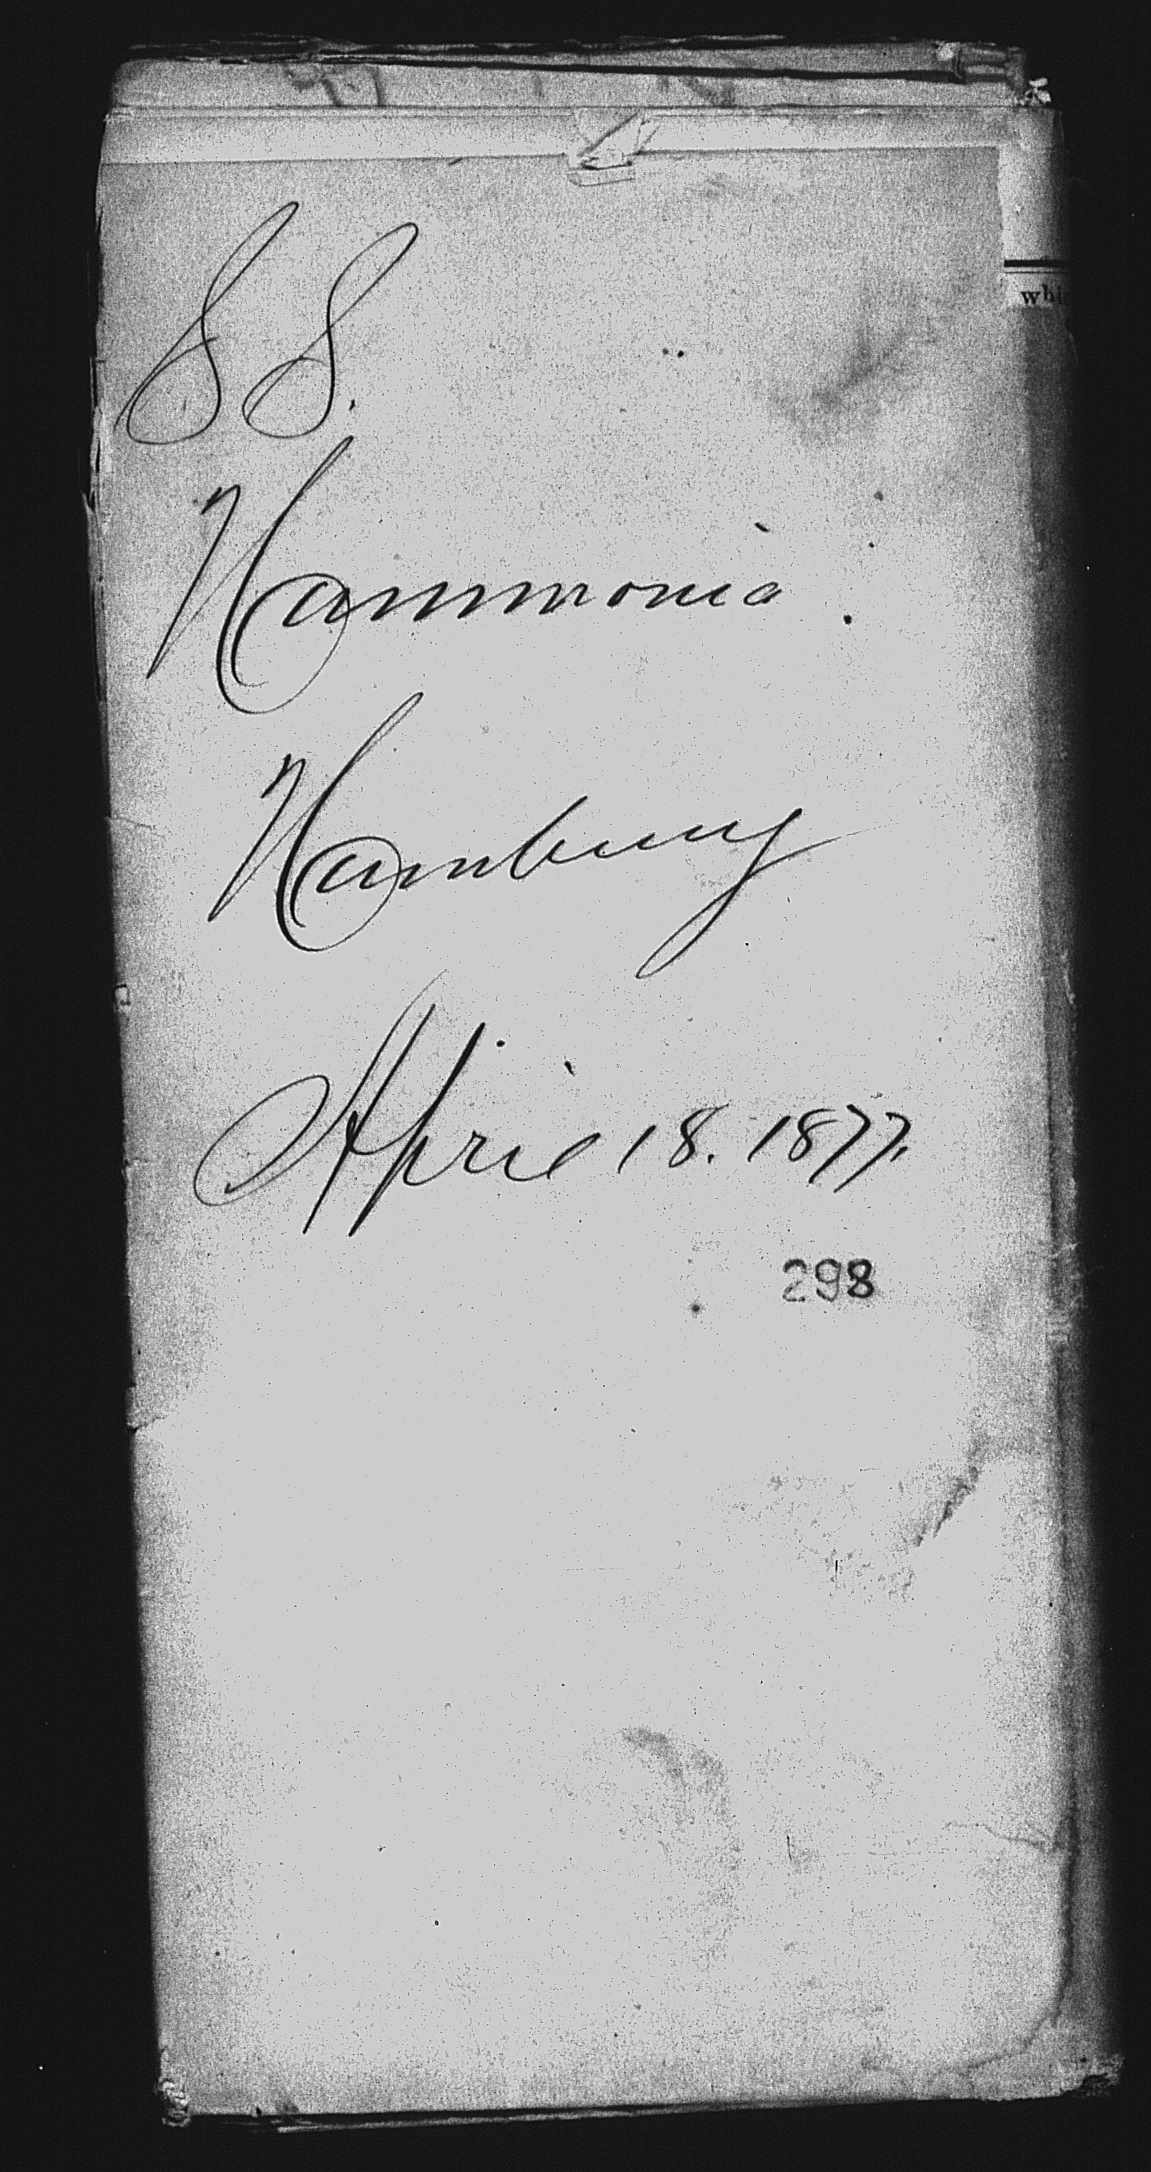 S S.
Hammonia
Hamburg
April 18. 1877.
298